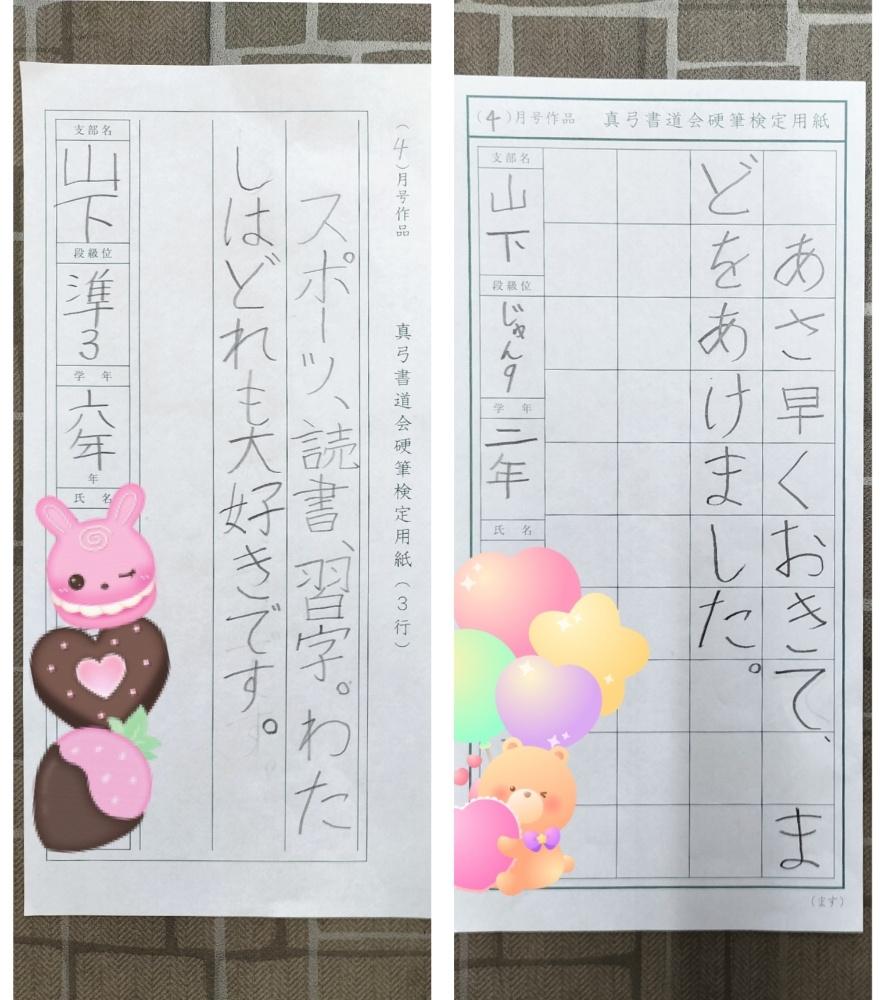 (4)月号作品　真弓書道会硬筆検定用紙(3行)
スポーツ、読書、習字。わた
しはどれも大好きです。
支部名
山下
段級位
準3
学年
六年
年
氏名
(4)月号作品　真弓書道会硬筆検定用紙
あさ早くおきて、ま
どをあけました。
支部名
山下
段級位
じゅん9
学年
二年
氏名
(ます)